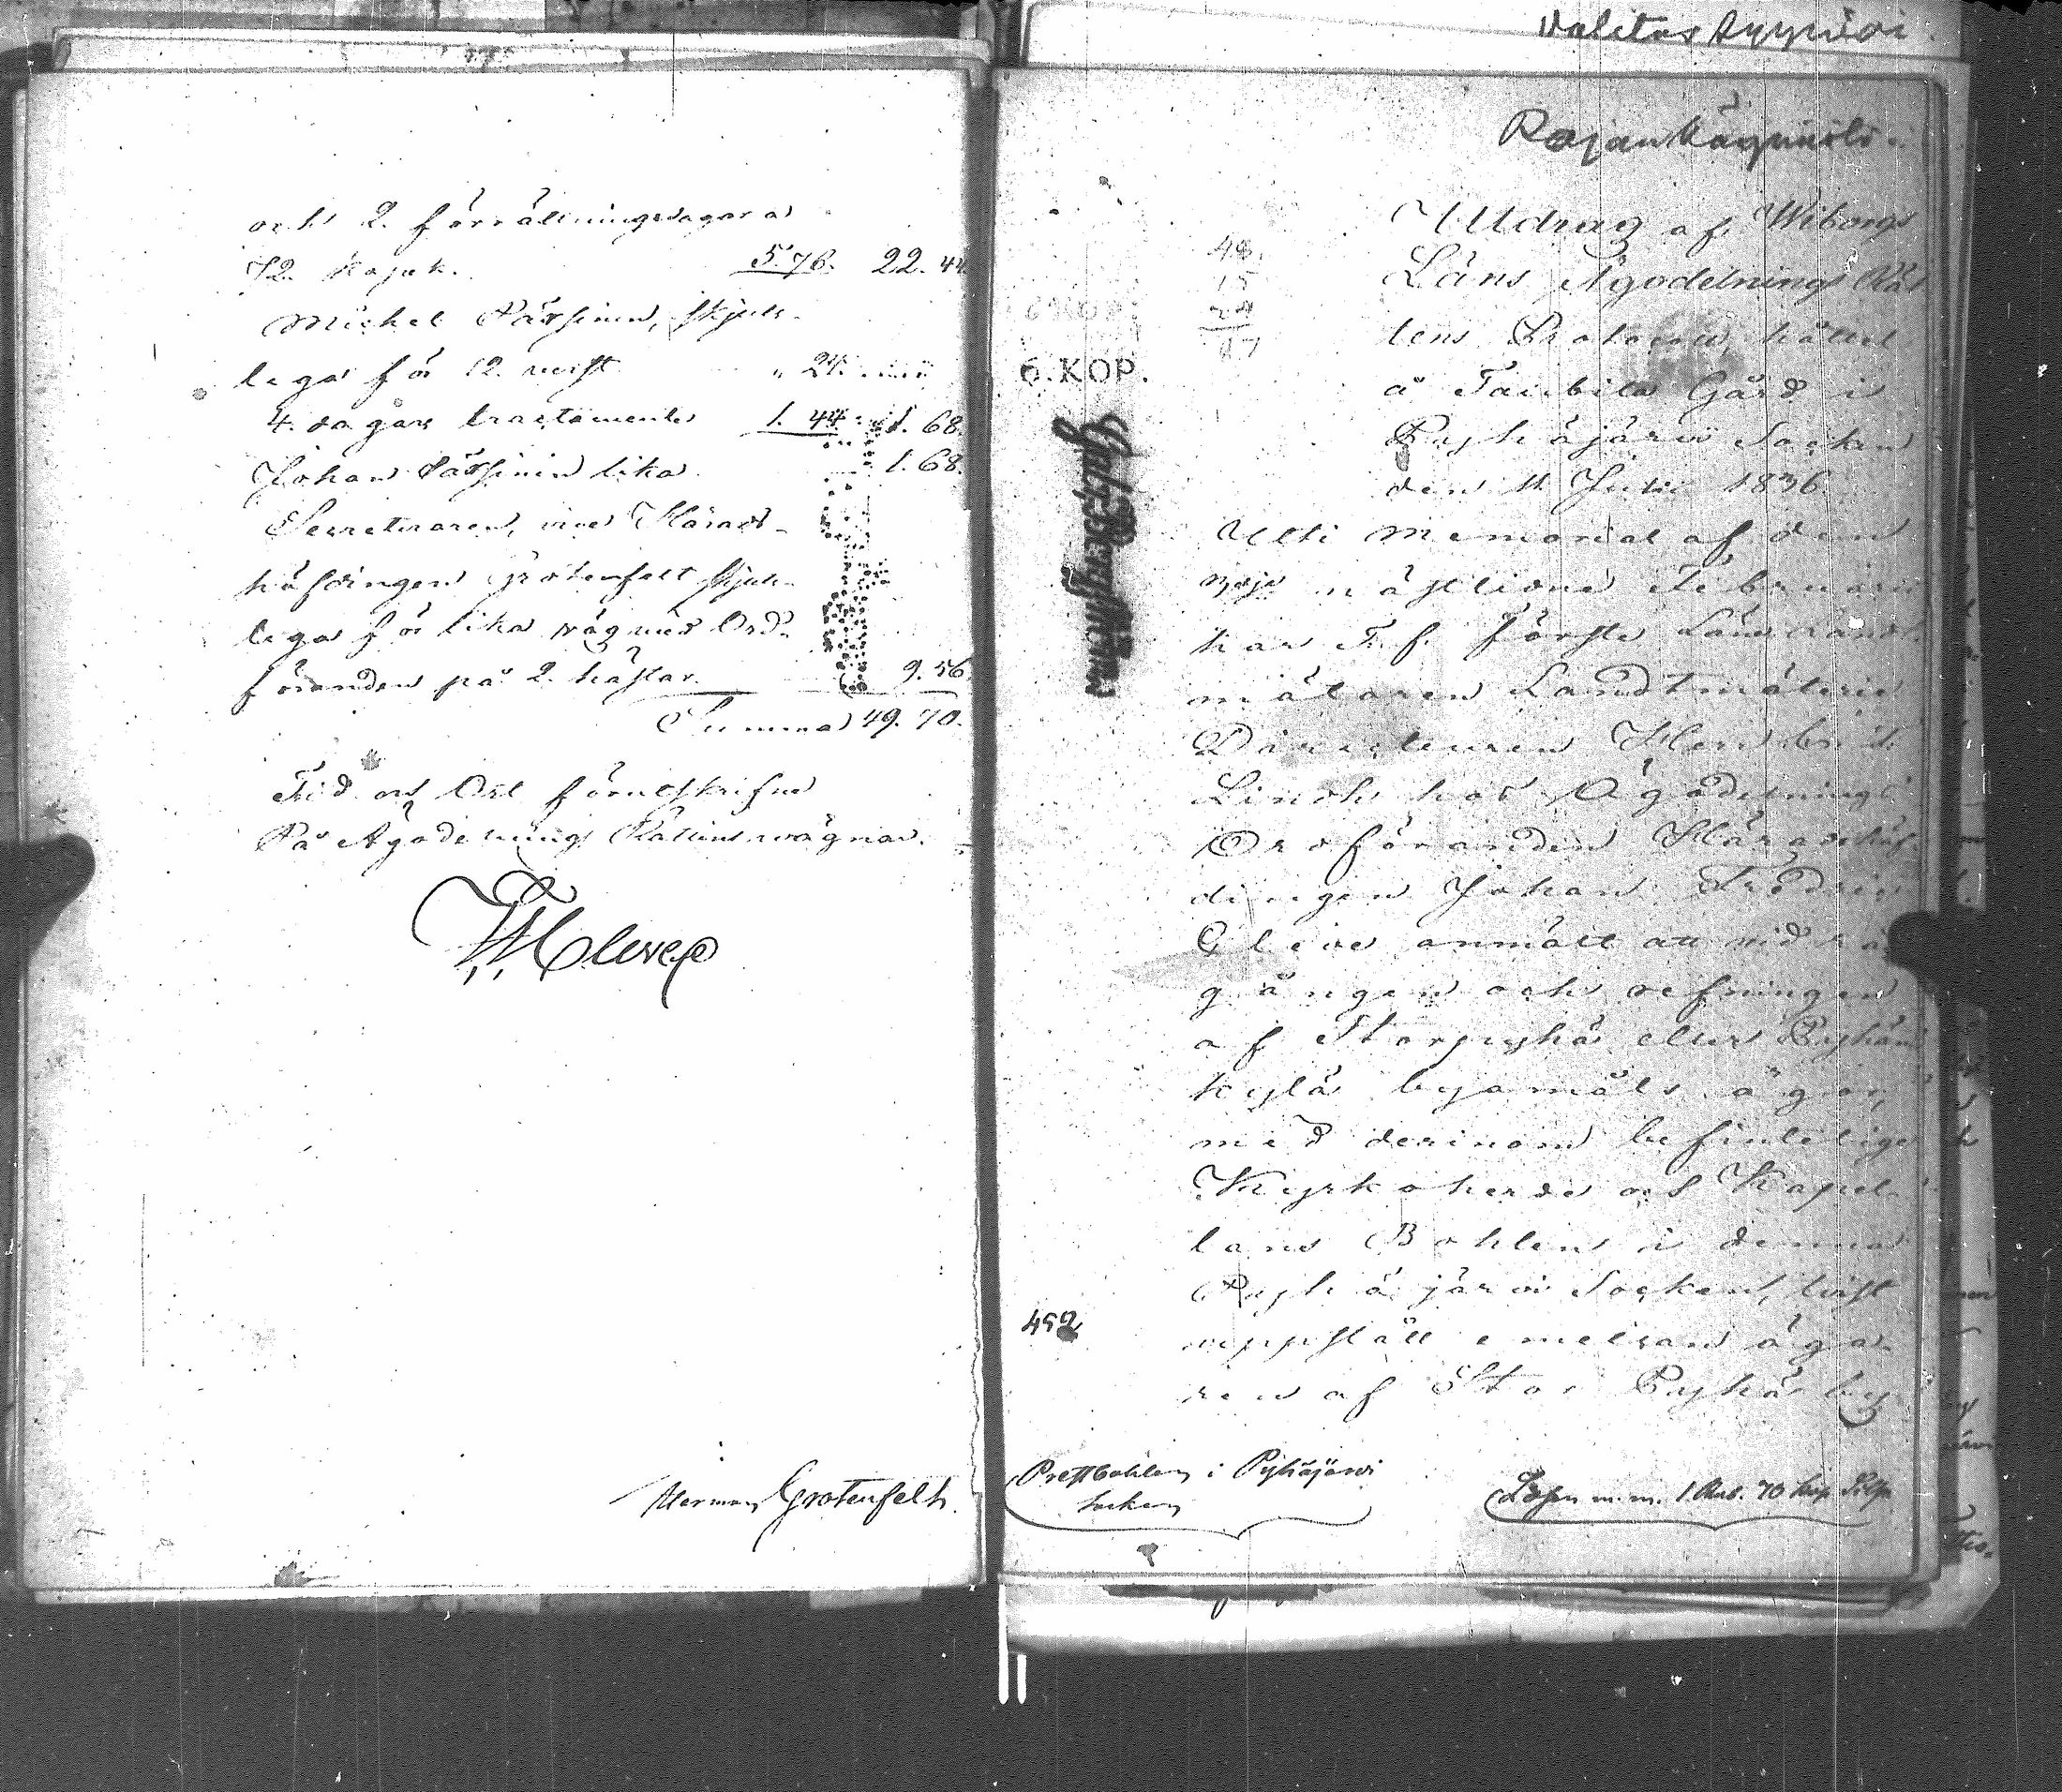 och 2. förrättningsdagar a
72. Kopek. 5.76. 22.44.
Michel Pärssinen, skjuts-
lega för 12. werst " 24.
4. dagars tractamente 1.44. 1.68.
Johan Pärssinen lika 1.68.
Secreteraren, vice Härads-
höfdingen Grotenfelt skjuts-
lega för lika väg med Ord-
föranden på 2. hästar 9.56.
Summa 49.70.
Tid och Ort förutskrifne
På Ägodelnings Rättens wägnar.
Herman Grotenfelt.
Valitus
Rajankäynnistä
Utdrag af Wiborgs
Läns Ägodelnings Rät
tens Protocoll, hållet
å Taubila Gård i
Pyhäjärvi Socken
den 11 Julii 1836.
6. KOP.
48.
15
24
87
Uti Memorial af den
nästlidne Februarii
har T. f. Förste Landt-
mätaren Landtmäterie
Directeuren Henrik
Lindh hos Ägodelnings
Ordföranden Häradshöf
dingen Johan Fredric
Cleve anmält att vid rå
gången och refningen
af Storpyhä eller Pyhän
kylä byamåls ägor,
med derinom befinteliga
Kyrkoherde och Kapel-
lans Bohlen i denna
Pyhäjärvi Socken, tvist
uppstått emellan äga-
ren af Stor Pyhä by
492
Prestbohlen i Pyhäjärvi
Socken